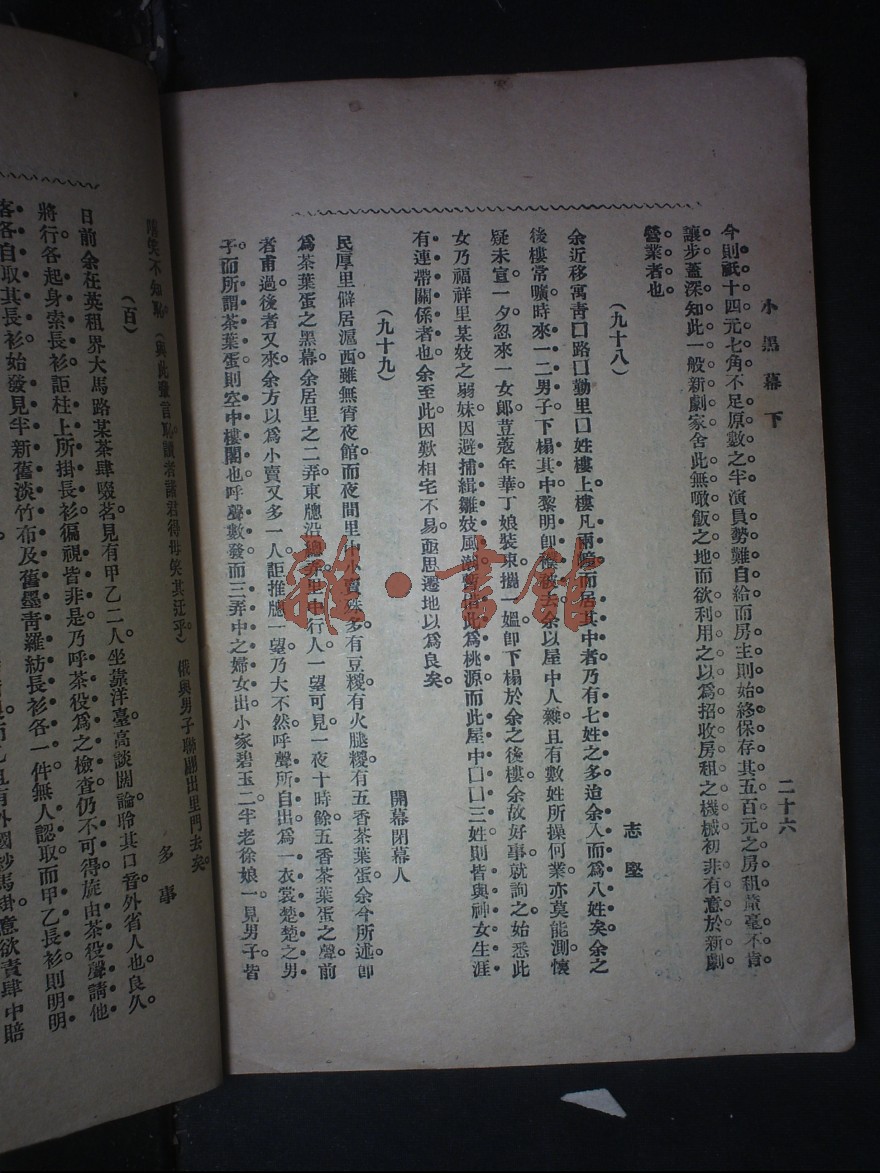 小黑幕下
二十六
今則祇十四元七角不足原數之半演員勢難自給而房主則始終保存其五百元之房租䔣毫不肯
讓步蓋深知此一般新劇家舍此無噉飯之地而欲利用之以爲招收房租之機械初非有意於新劇
營業者也
(九十八)
志堅
余近移寓靑口路口勤里口姓樓上樓凡兩幢而居其中者乃有七姓之多迨余入而爲八姓矣。余之
後樓常曠時來一二男子下榻其中黎明卽去余以屋中人雜且有數姓所操何業亦莫能測懷
疑未宣一夕忽來一女郎荳蔻年華丁娘裝束攜一媼卽下榻於余之後樓余故好事就詢之始悉此
女乃福祥里某妓之弱妹因避捕緝雛妓風潮暫借此爲桃源而此屋中口口三姓則皆與神女生涯
有連帶關係者也余至此因歎相宅不易亟思遷地以爲良矣。
(九十九)
開幕閉幕人
民厚里僻居滬西雖無宵夜館而夜間里中小賣殊多有豆糉有火腿糉有五香茶葉蛋余今所述卽
爲茶葉蛋之黑幕余居里之二弄東牕沿弄里中行人一望可見一夜十時餘五香茶葉蛋之聲前
者甫過後者又來余方以爲小賣又多一人詎推牕一望乃大不然呼聲所自出爲一衣裳楚楚之男
子而所謂茶葉蛋則空中樓閣也呼聲數發而三弄中之婦女出小家碧玉二半老徐娘一見男子皆
笑不知恥(與此輩言恥讀者諸君得毋笑其迂乎)俄與男子聯翩出里門去矣。
(百)
多事
日前余在英租界大馬路某茶肆啜茗見有甲乙二人坐靠洋臺高談闊論聆其口音外省人也良久
將行各起身索長衫詎柱上所掛長衫徧視皆非是乃呼茶役爲之檢查仍不可得旋由茶役聲請他
客各自取其長衫始發見半新舊淡竹布及舊墨靑羅紡長衫各一件無人認取而甲乙長衫則明明
有外國紗馬掛意欲責肆中賠
雜·書館